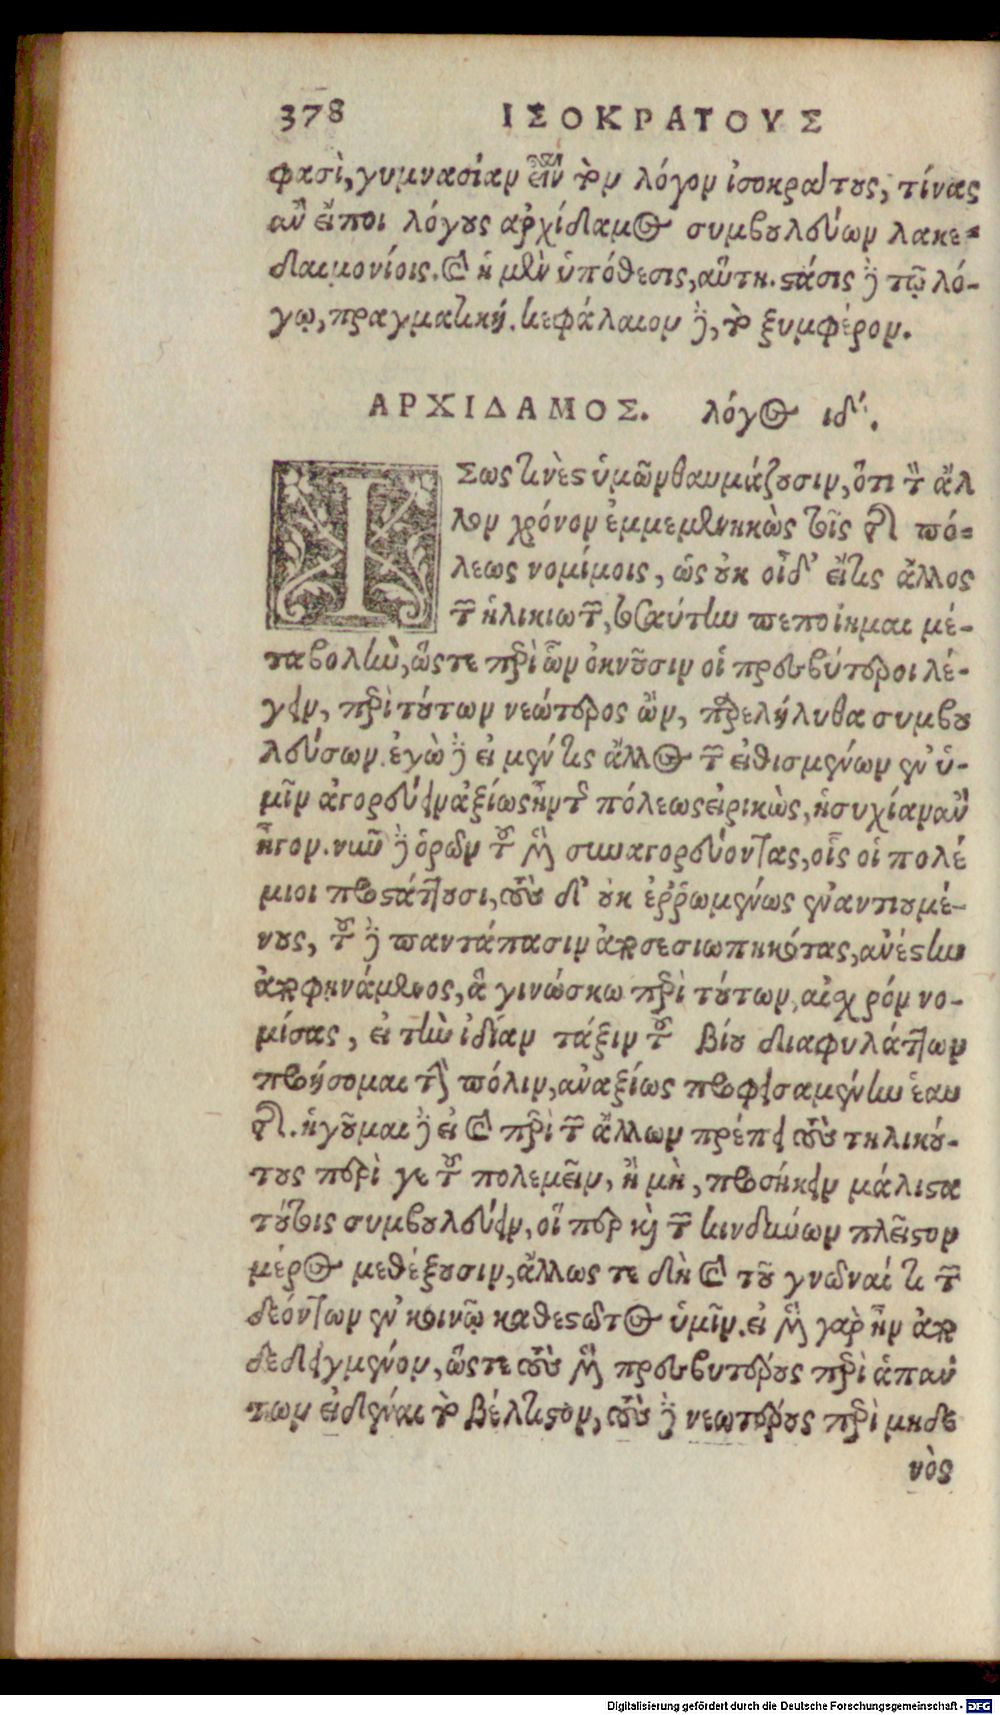 378 ΙΣΟΚΡΑΤΟΥΣ
φασὶ, γυμνασίαν εἶναι τὸν λόγον ἰσοκράτους, τίνας
ἂν εἴποι λόγους ἀρχίδαμος συμβουλεύων λακε-
δαιμονίοις. καὶ ἡ μὲν ὑπόθεσις, αὕτη. στάσις δὲ τῷ λό-
γῳ, πραγματική. κεφάλαιον δὲ, τὸ ξυμφέρον.
ΑΡΧΙΔΑΜΟΣ. λόγος ιδʹ.
ΙΣως τινὲς ὑμῶν θαυμάζουσιν, ὅτι τὸν ἄλ
λον χρόνον ἐμμεμενηκὼς τοῖς τῆς πό-
λεως νομίμοις, ὡς οὐκ οἶδ' εἴ τις ἄλλος
τῶν ἡλικιωτῶν, τοσαύτην πεποίημαι με-
ταβολὴν, ὥστε περὶ ὧν ὀκνοῦσιν οἱ πρεσβύτεροι λέ-
γειν, περὶ τούτων νεώτερος ὢν, παρελήλυθα συμβου
λεύσων. ἐγὼ δὲ εἰ μέν τις ἄλλος τῶν εἰθισμένων ἐν ὑ-
μῖν ἀγορεύειν ἀξίως ἦν τῆς πόλεως εἰρηκὼς, ἡσυχίαν ἂν
ἦγον. νῦν δὲ ὁρῶν τοὺς μὲν συναγορεύοντας, οἷς οἱ πολέ
μιοι προστάττουσι, τοὺς δ' οὐκ ἐῤῥωμένως ἐναντιουμέ-
νους, τοὺς δὲ παντάπασιν ἀποσεσιωπηκότας, ἀνέστην
ἀποφηνάμενος, ἃ γινώσκω περὶ τούτων, αἰσχρὸν νο-
μίσας, εἰ τὴν ἰδίαν τάξιν τοῦ βίου διαφυλάττων
προήσομαι τὴν πόλιν, ἀναξίως προφισαμένην ἑαυ
τῆς. ἡγοῦμαι δὲ εἰ καὶ περὶ τῶν ἄλλων πρέπει τοὺς τηλικού-
τους περὶ γε τοῦ πολεμεῖν, ἢ μὴ, προσήκειν μάλιστα
τούτοις συμβουλεύειν, οἵ περ καὶ τῶν κινδύνων πλεῖστον
μέρος μεθέξουσιν, ἄλλως τε δὴ καὶ τοῦ γνῶναί τι τῶν
δεόντων ἐν κοινῷ καθεστῶτος ὑμῖν. εἰ μὲν γὰρ ἦν ἀπο
δεδειγμένον, ὥστε τοὺς μὲν πρεσβυτέρους περὶ ἁπάν
των εἰδέναι τὸ βέλτιστον, τοὺς δὲ νεωτέρους περὶ μηδε
νὸς
Digitalisierung gefördert durch die Deutsche Forschungsgemeinschaft - DFG